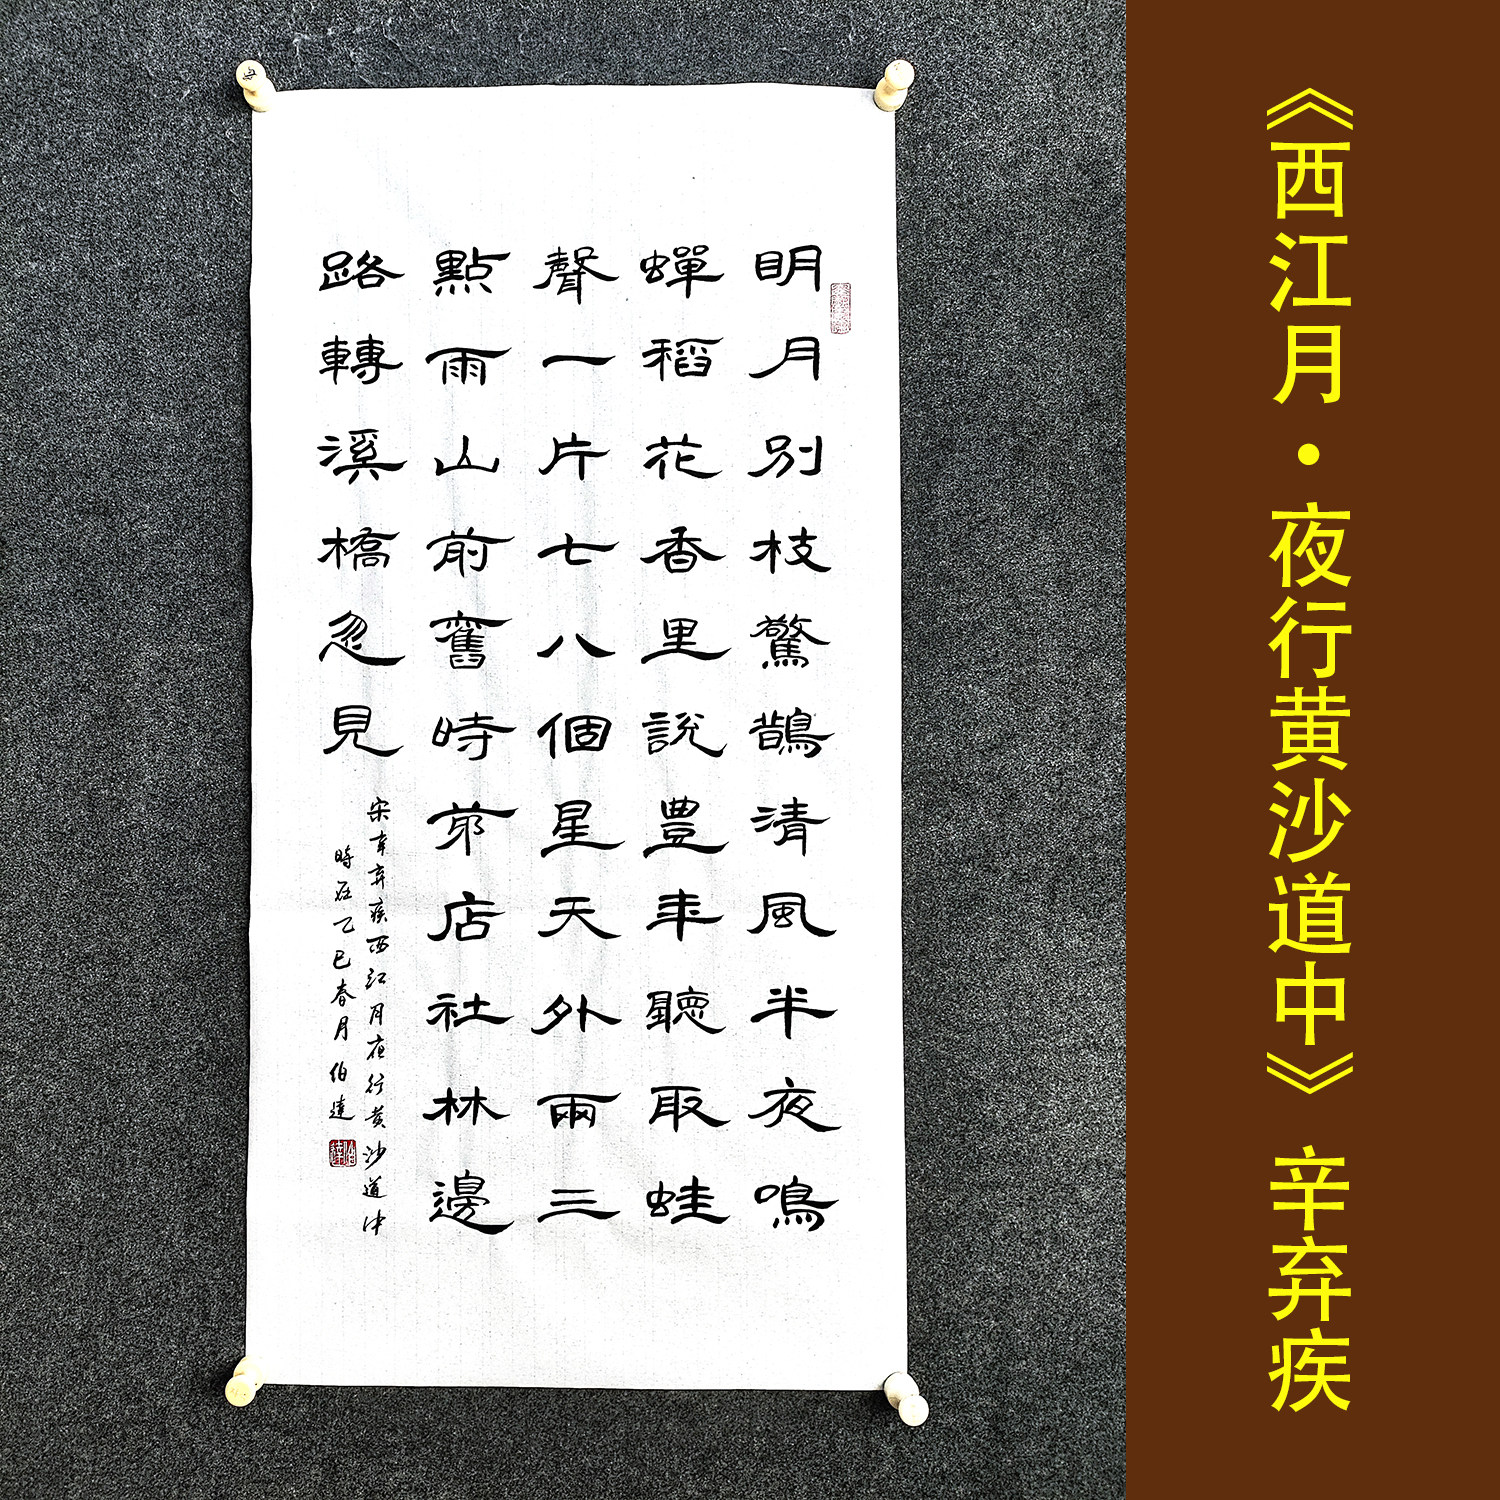 《西江月·夜行黄沙道中》 辛弃疾
明月別枝驚鵲清風半夜鳴
蟬稻花香里說豊年聽取蛙
聲一片七八個星天外兩三
點雨山前舊時茅店社林邊
路轉溪橋忽見
宋辛弃疾西江月夜行黄沙道中
時在乙巳春月伯達
伯達